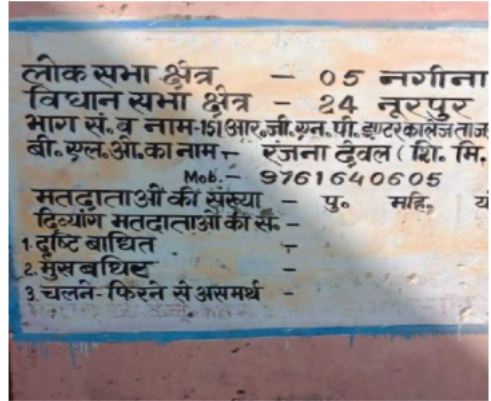 लोक सभा क्षेत्र - 05 नगीना
विधान सभा क्षेत्र - 24 नूरपुर
भाग सं॰ व नाम-151 आर॰जी॰एन॰पी॰इण्टरकालेज ताज
बी॰एल॰ओ॰का नाम - रंजना देवल (शि॰ मि॰
Mob.- 9761640605
मतदाताओं की संख्या - पु॰ महि॰ यो
दिव्यांग मतदाताओं की सं॰ -
1. दृष्टि बाधित -
2. मुख बधिर -
3. चलने-फिरने से असमर्थ -